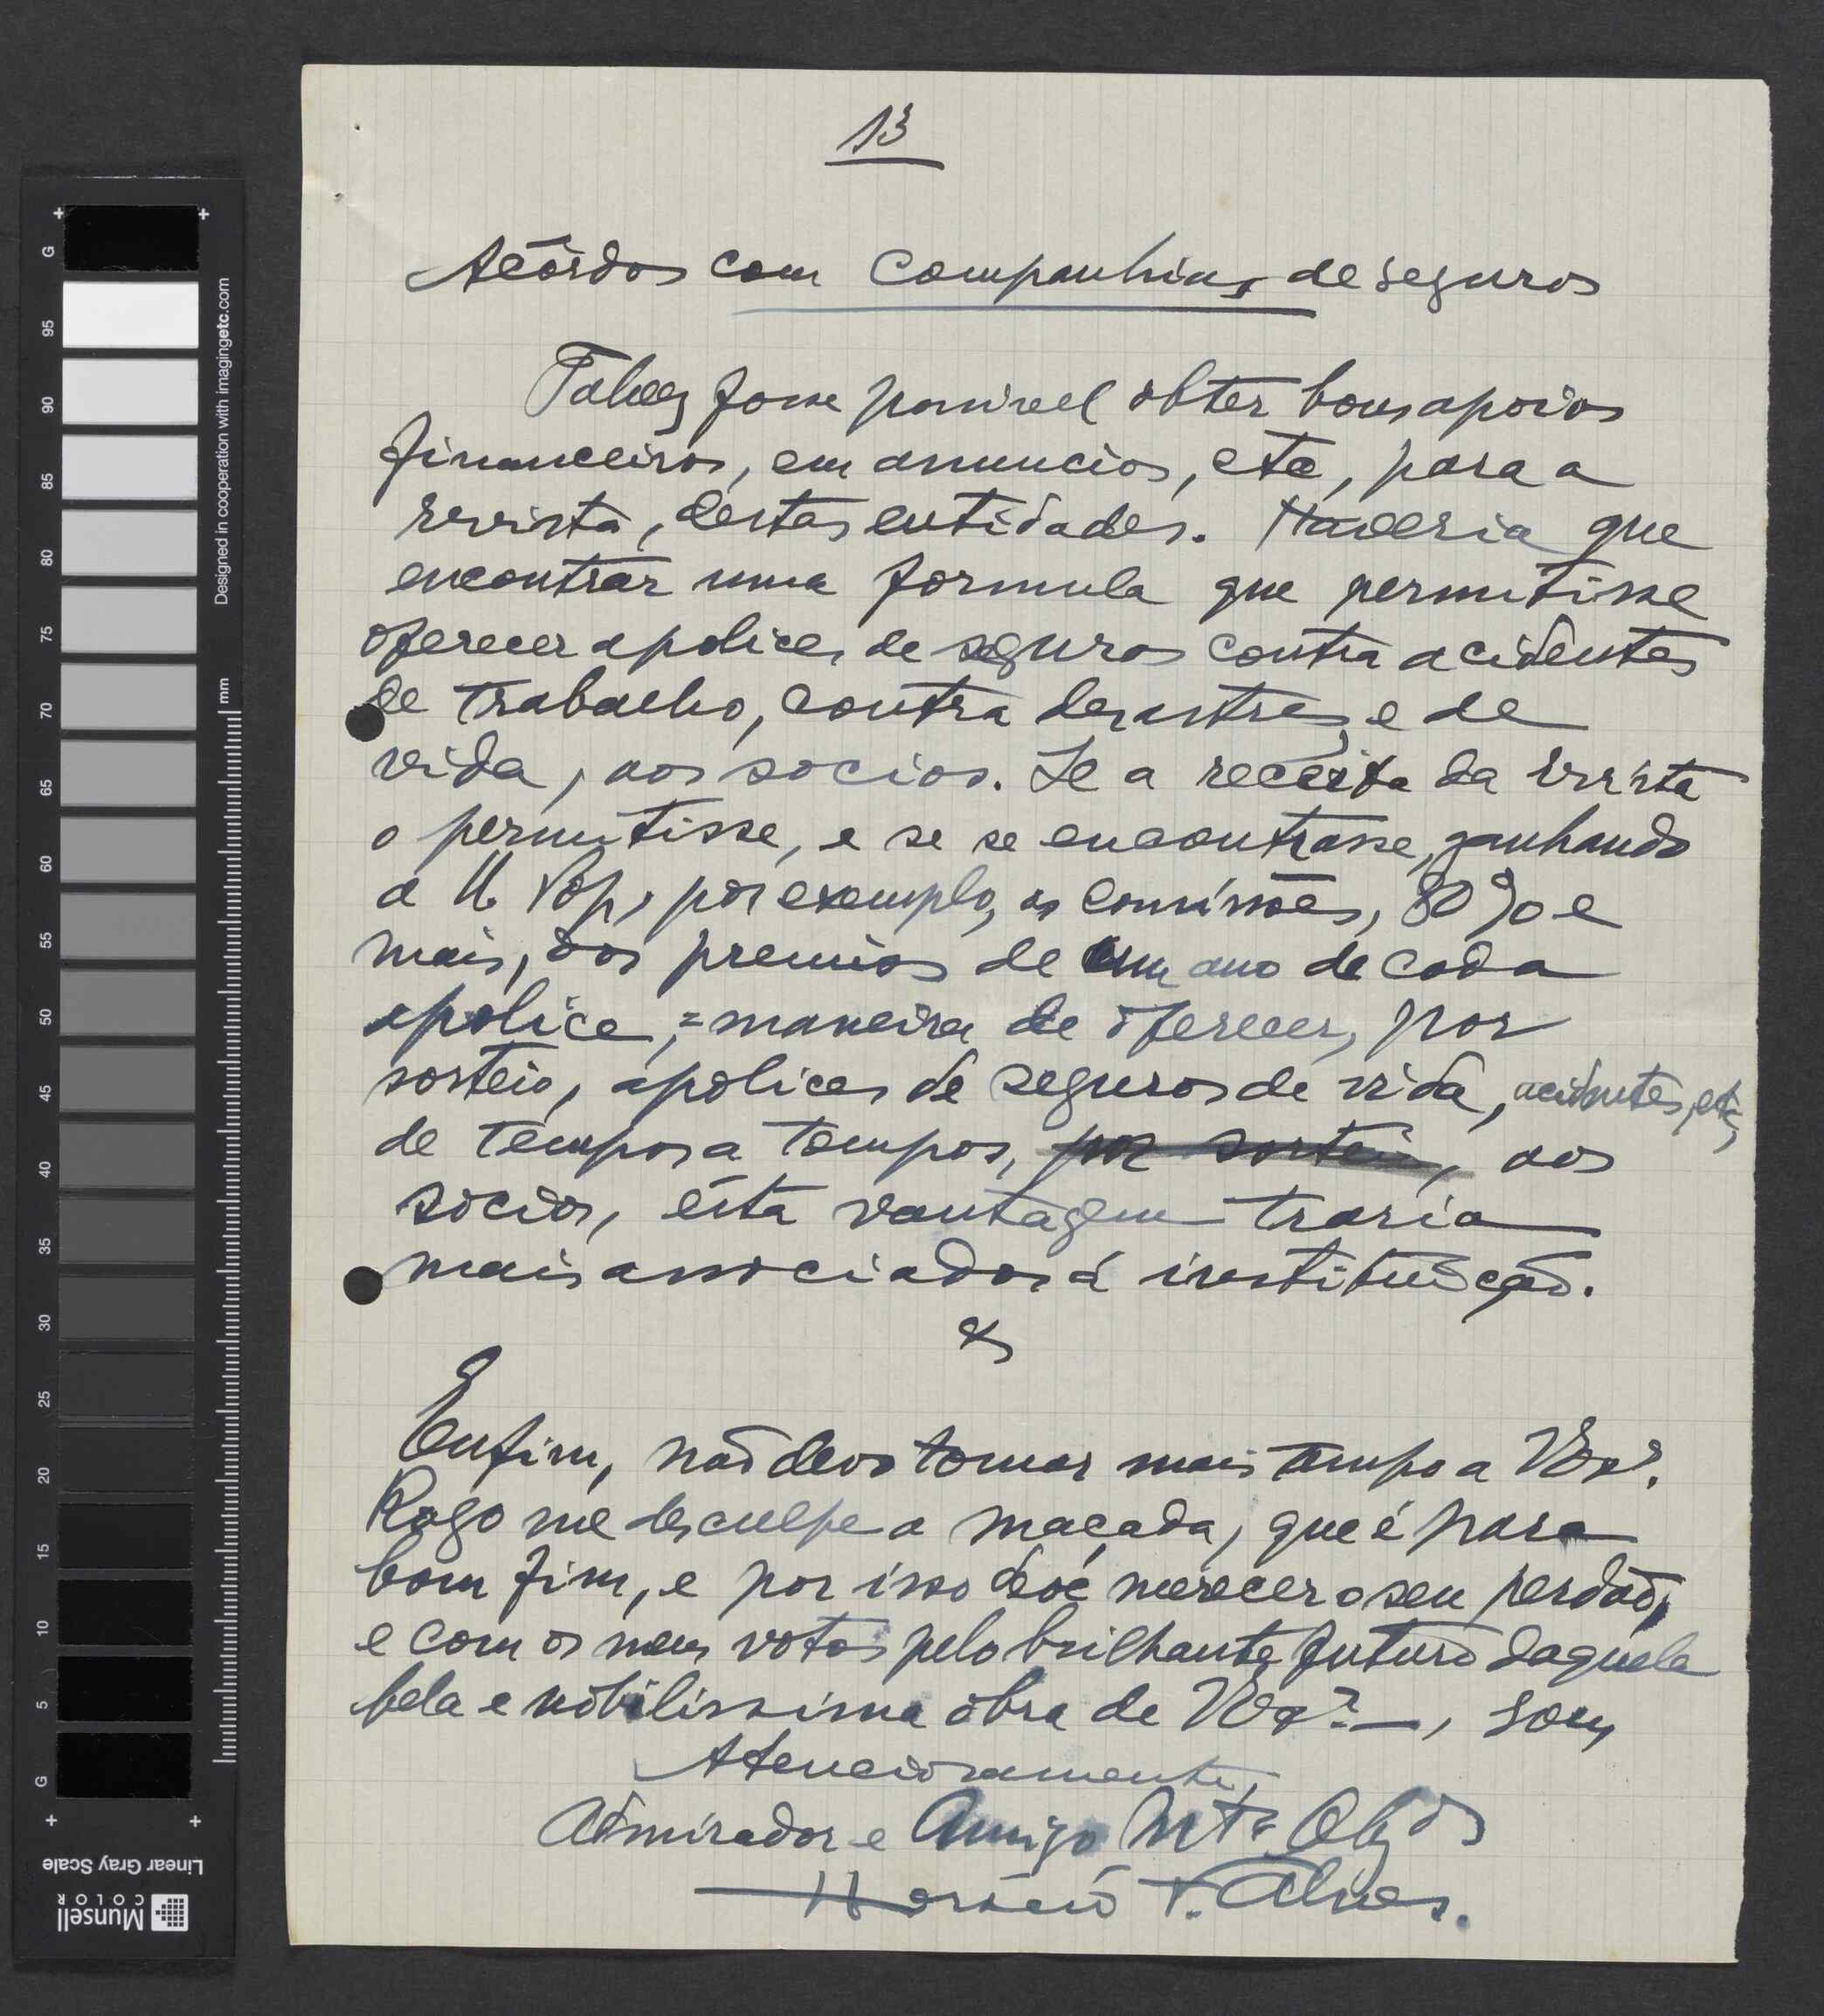 13
Acôrdos com Companhias de seguros
Talvez fosse possivel obter bons apoios
financeiros, em anuncios, etc, para a
revista, destas entidades. Haveria que
encontrar uma formula que permitisse
oferecer apolices de seguros contra acidentes
de trabalho, contra desastres, e de
vida, aos socios. Se a receita da revista
o permitisse, e se se encontrasse, ganhando
a U. Pop, por exemplo, as comissões, 80% e
mais, dos premios de um ano de cada
apolice, = maneira de oferecer, por
sorteio, apolices de seguros de vida, acidentes, etc,
de tempos a tempos, por sorteio, aos
socios, ésta vantagem traria
mais associados á instituição.
Enfim, não devo tomar mais tempo a VExª.
Rogo me desculpe a maçada, que é para
bom fim, e por isso deve merecer o seu perdão,
e com os meus votos pelo brilhante futuro daquela
bela e nobilissima obra de VExª—, sou,
Atenciosamente,
Admirador e Amigo Mtº Obgdº
Horácio V. Alves.
G
95
90
85
80
75
70
65
60
55
50
45
40
35
30
25
20
15
10
5
G
mm
Designed in cooperation with imagingetc.com
Linear Gray Scale
Munsell
COLOR